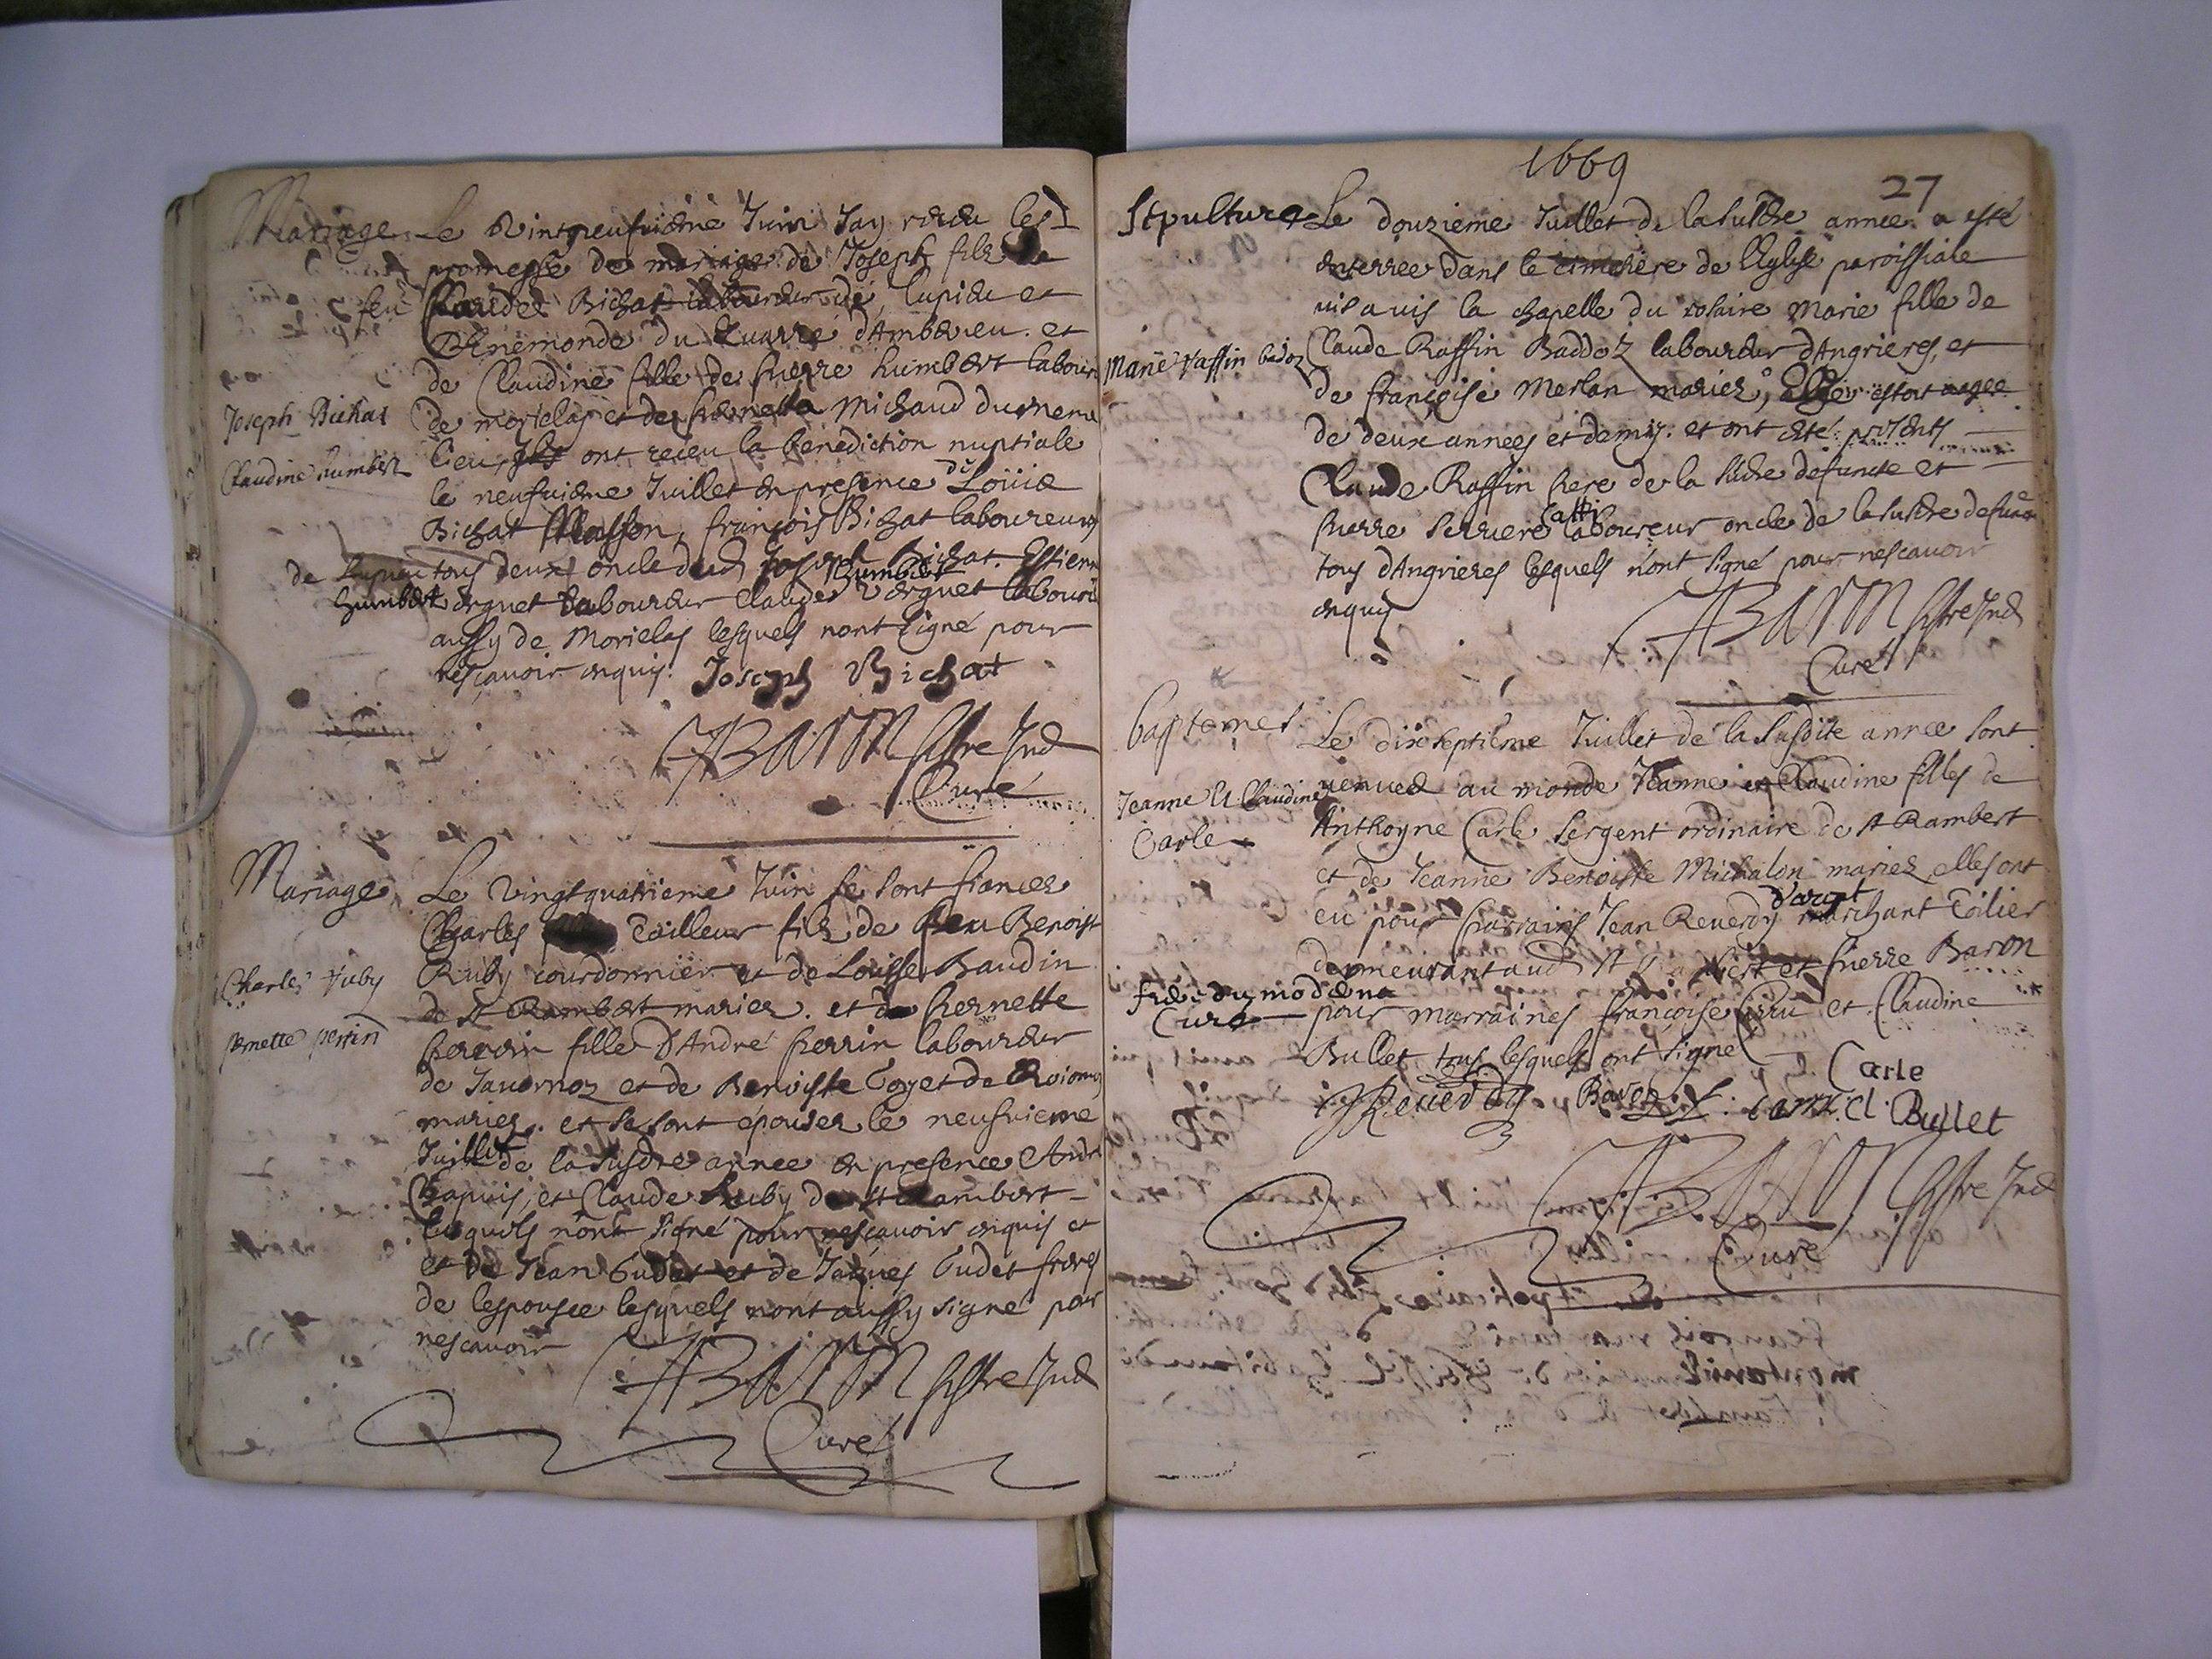 Mariage Le Vintneufvieme Juin Jay receu les
promesse de mariage de Joseph filz de
feu Claude Bichat laboureur de lupieu et
Denemonde du quarré d'Ambereu. et
de Claudine fille de pierre humbert labour
de morielas et de pernetta Michaud du meme
Joseph Bichat
lieu, Ils ont receu la benediction nuptiale
Claudine humbert
le neufvieme Juillet en presence de Loüis
Bichat Masson, françois Bichat laboureurs
de lupieu tous deux oncle dud Joseph Bichat. Estienne
humbert
humbert erguet laboureur Claude verguet labour
aussy de Morielas lesquels nont signé pour
nescavoir enquis. Joseph Bichat
ABaron pstre Ind
Curé
Mariage Le Vingtquatrieme Juin se sont fiancez
Charles Tailleur filz de feu Benoist
Charles ruby
Ruby courdonnier et de Louisse Baudin
de St Rambert mariez. et de Pernette
pernette perrin
perrin fille d'André perrin laboureur
de Javornoz et de Benoiste Goyet de
mariez. et se sont epousez le neufvieme
Juillet de la susdte annee en presence André
Chapuis, et Claude Ruby de st Rambert
lesquels n'ont signé pour nescavoir enquis et
et de Jean Gudet et de Jaques Gudet freres
de lespousee lesquels nont aussy signé pour
nescavoir
ABaron pstre Ind
Curé
1669
27
Sepulture Le douzieme Juillet de la susdte annee a esté
enterree dans le cimetiere de l'Eglise paroissiale
vis a vis la chapelle du rosaire Marie fille de
Marie raffin badoz
Claude Raffin Baddoz laboureur d'Angrieres, et
de françoise Merlan mariez, estoit agee
de deux annees et demy. et ont eté presents
Claude Raffin pere de la sudte defuncte et
pierre Serriere laboureur oncle de la susdte defuncte
tous d'Angrieres lesquels n'ont signé pour nescavoir
enquis
ABaron pstre Ind
Curé
baptemes
Le dixseptieme Juillet de la susdite annee sont
Jeanne et Claudine
Carle
venues au monde Jeanne et Claudine filles de
Anthoyne Carle sergent ordinaire de st Rambert
et de Jeanne Benoiste Michalon mariez elles ont
eu pour parrains Jean Reverdy marchant Toilier
demeurant aud St Rambert et pierre Baron
Curé
pour marraines françoise et Claudine
Bullet tous lesquels ont signe
Carle
JReverdy Baron Cl. Bullet
ABaron pstre Ind
Curé